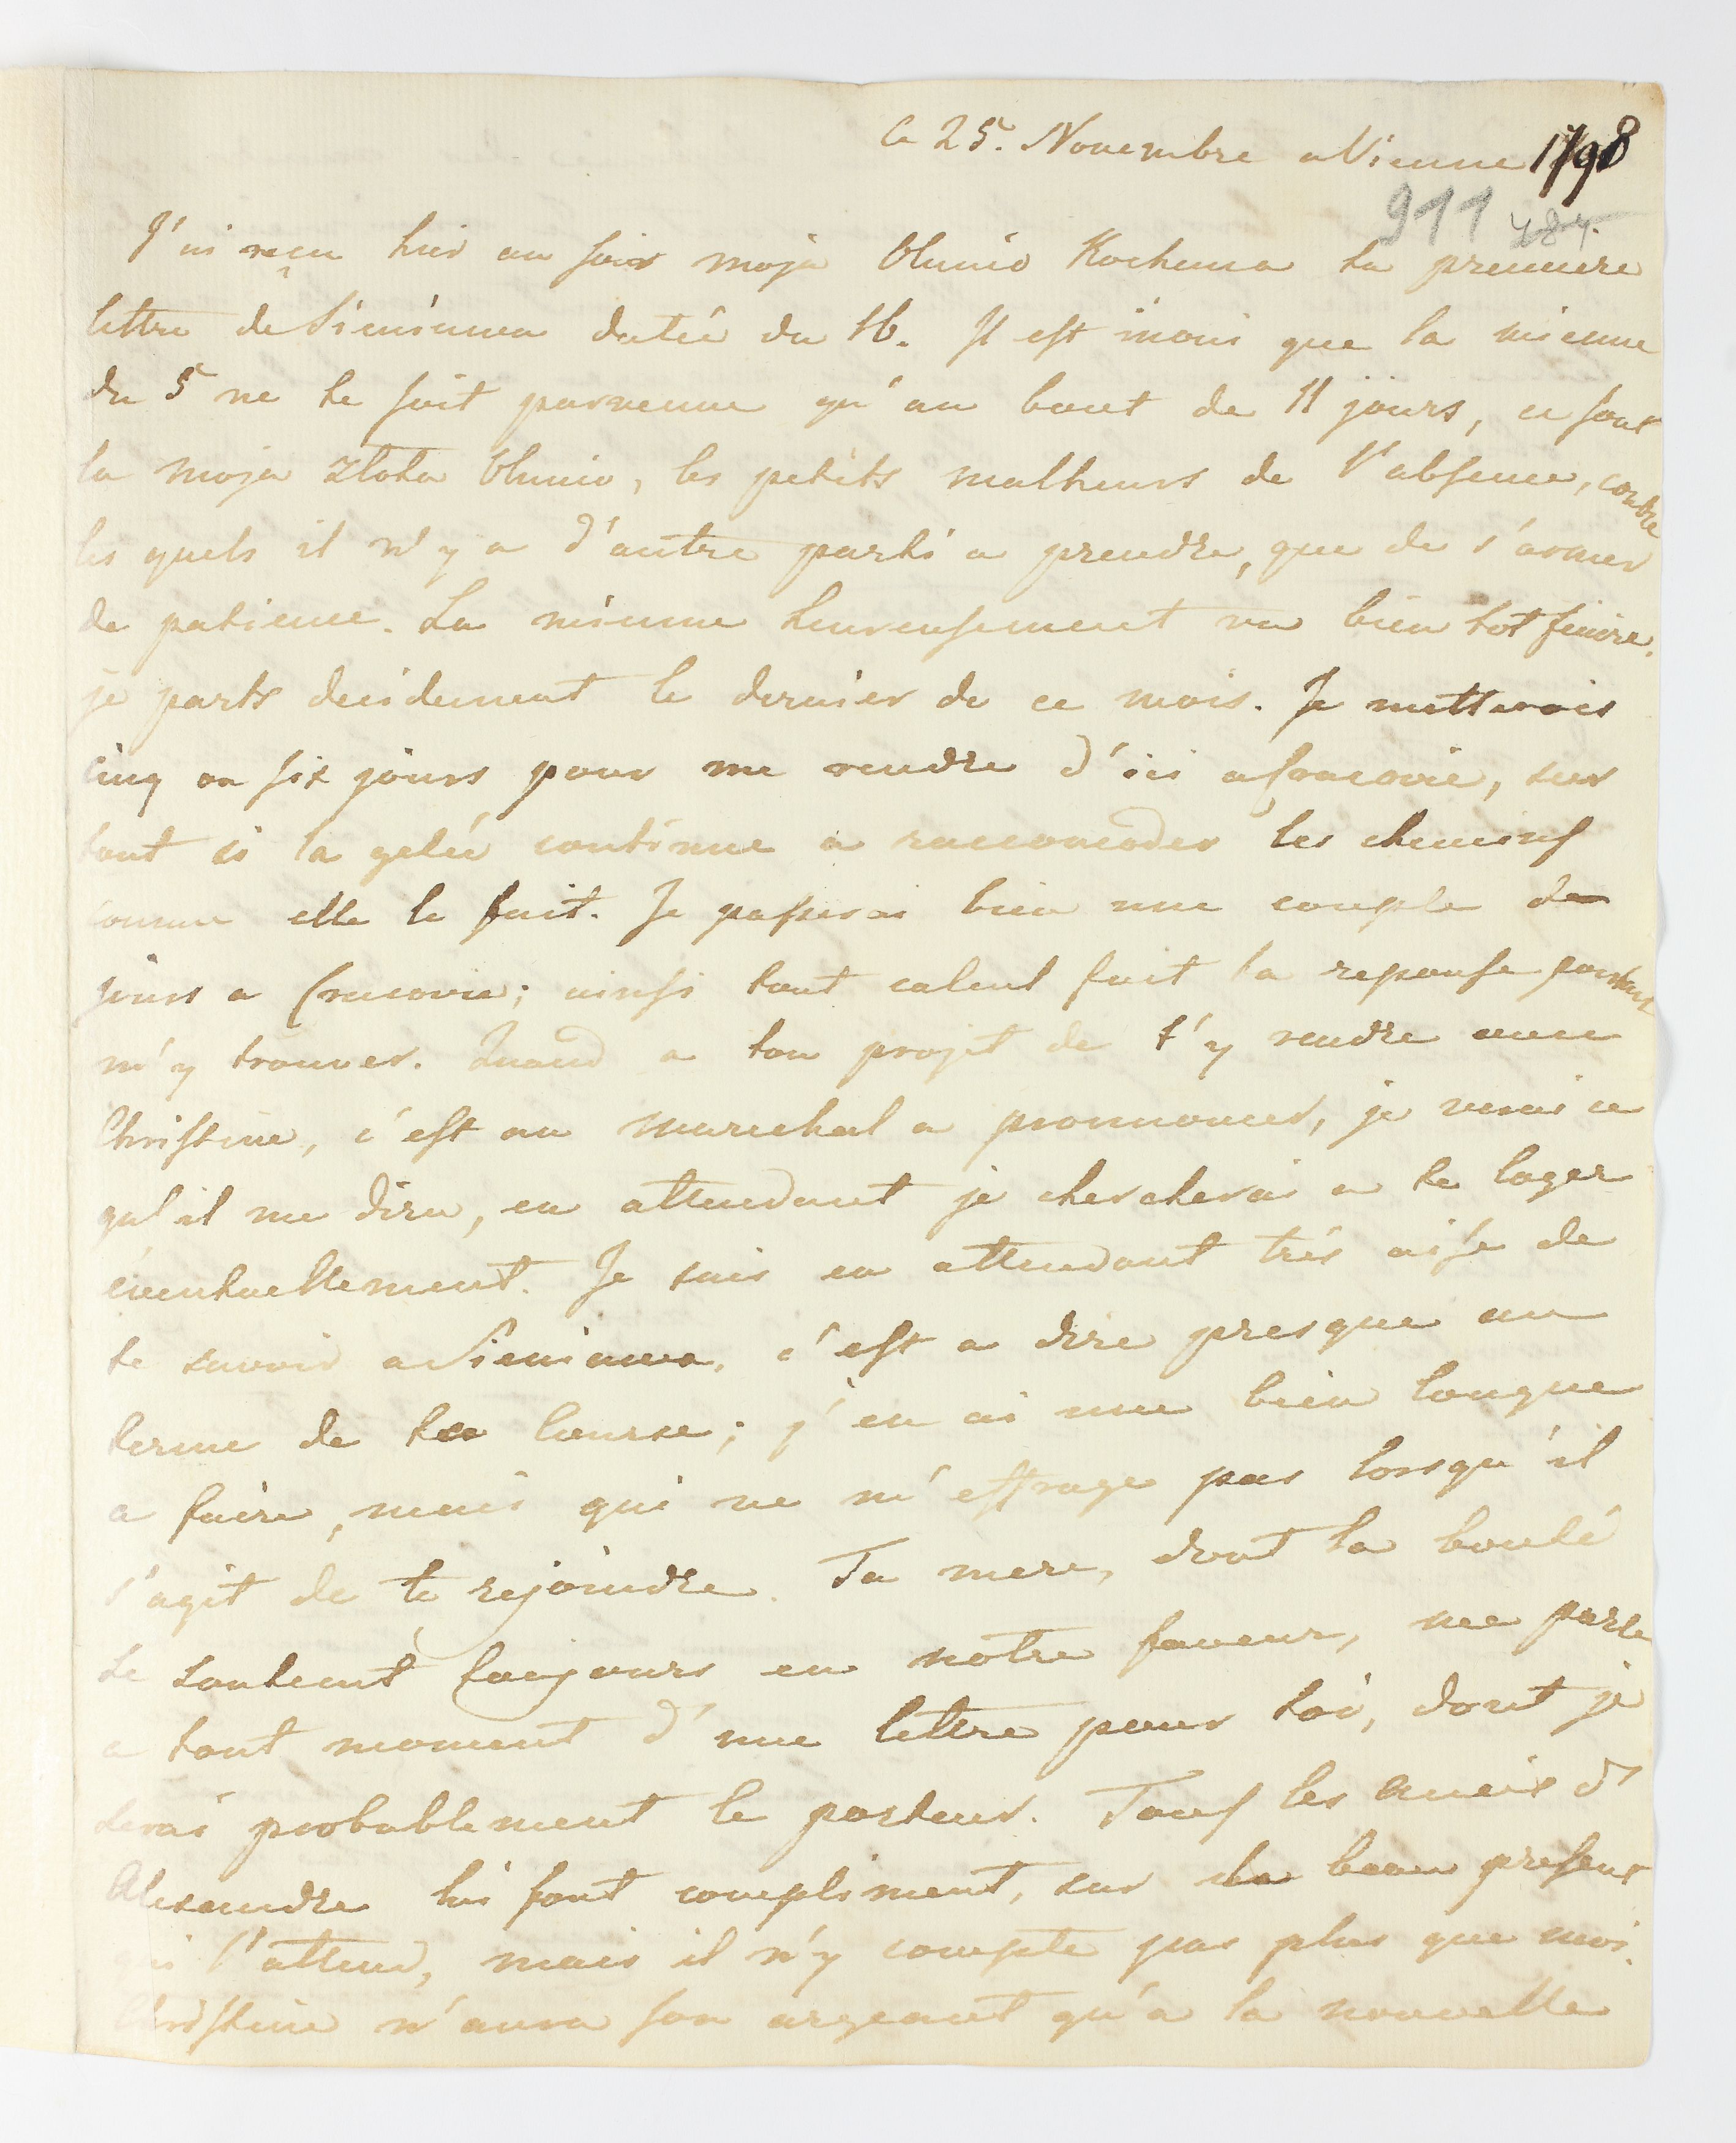 Ce 25. Novembre a Vienne 1798
911 484.
J'ai reçu hier au soir moja Olunio Kochana ta premiere
lettre de Sieniawa datée du 16. Il est inoui que la mienne
du 5 ne te soit parvenue qu'au bout de 11 jours, ce sont
la moja zlota Olunio, les petits malheurs de l'absence, contre
les quels il n'y a d'autre parti a prendre, que de s'armer
de patience. La mienne heureusement va bien tot finire.
je parts decidement le dernier de ce mois. Je metterois
cinq ou six jours pour me rendre d'ici a Cracovie, sur
tout si la gelée continue a raccomoder les chemins
comme elle le fait. Je passerai bien une couple de
jours a Cracovie; ainsi tout calcul fait ta reponse pourra
m'y trouver. Quand a ton projet de t'y rendre avec
Christine, c'est au marechal a prononcer, je verai ce
qu'il me dira, en attendant je chercherai a te loger
eventuellement. Je suis en attendant très aise de
te savoir a Sieniawa, c'est a dire presque au
terme de ta course; j'en ai une bien longue
a faire, mais qui ne m'effraye pas lorsqu'il
s'agit de te rejoindre. Ta mere, dont la bonté
se soutient toujours en notre faveur, me parle
a tout moment d'une lettre pour toi, dont je
serai probablement le porteur. Tous les amis d'
Alexandre lui font compliment, sur le beau present
qui l'attend, mais il n'y compte pas plus que moi.
Christine n'aura son argent qu'a la nouvelle